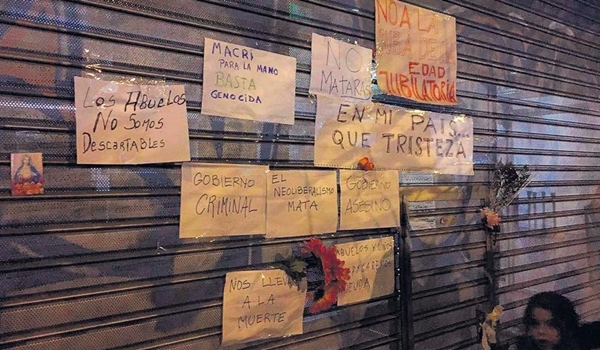 NO A LA
EDAD
JUBILATORIA
MACRI
PARA LA MANO
BASTA
GENOCIDA
NO
MATARÁS
LOS ABUELOS
NO SOMOS
DESCARTABLES
EN MI PAÍS...
QUE TRISTEZA
GOBIERNO
CRIMINAL
EL
NEOLIBERALISMO
MATA
GOBIERNO
ASESINO
ABUELOS
NOS LLEVA
A LA
MUERTE